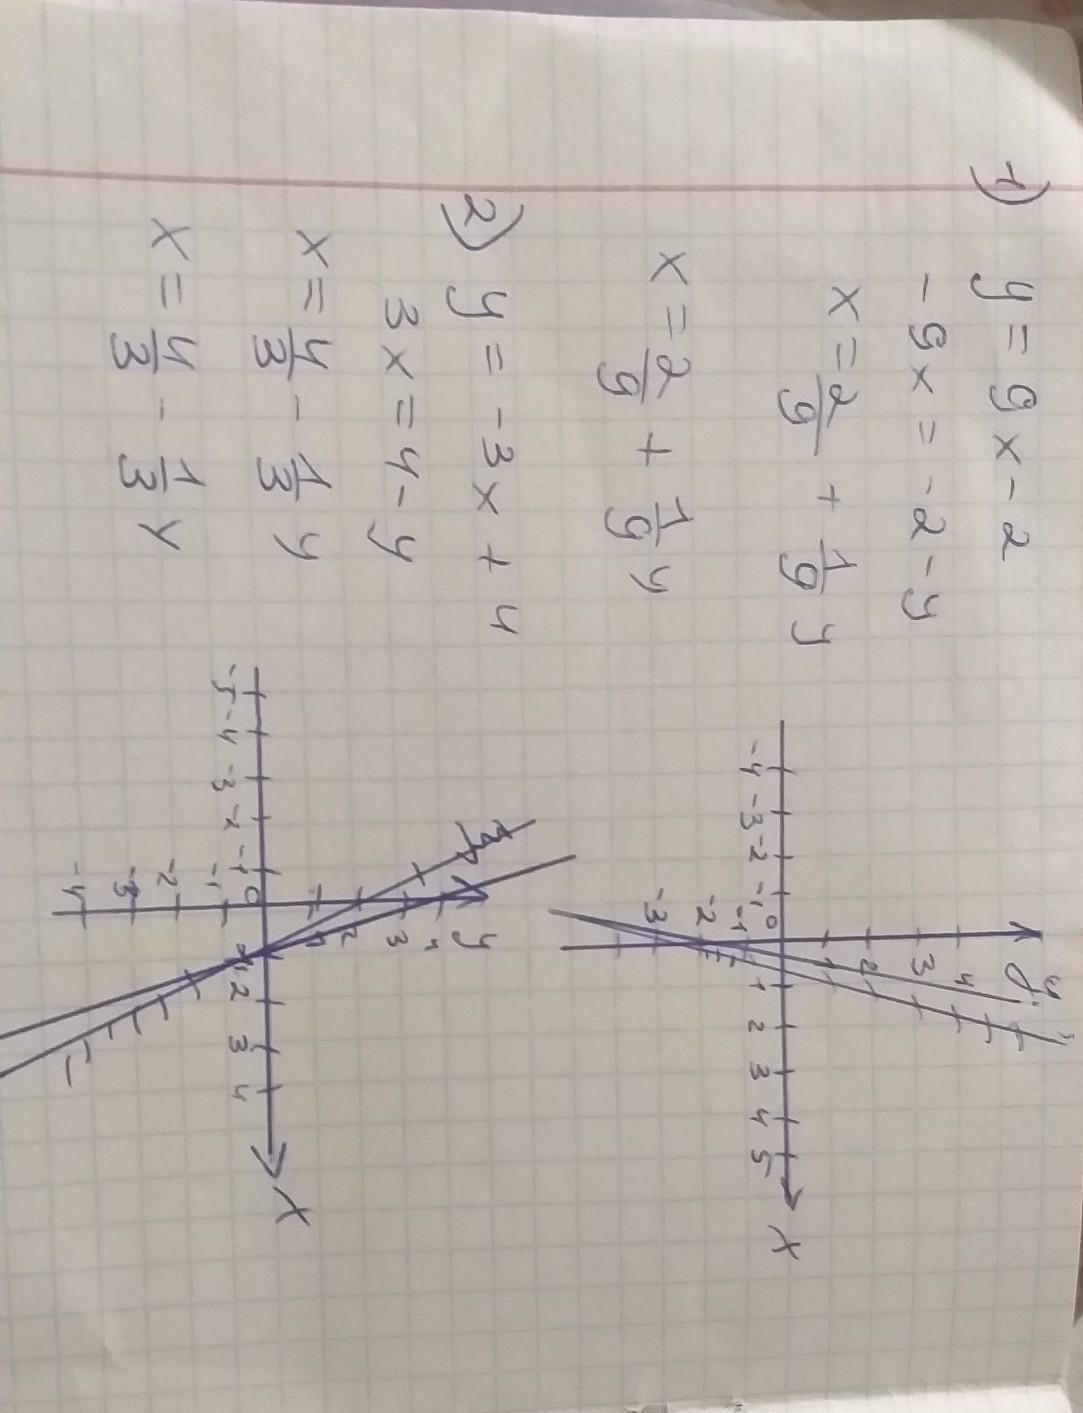 1) y = 9x - 2
- 9x = - 2 - y
x = 2/9 + 1/9 y
x = 2/9 + 1/9 y
y
4
3
2
1
-4 -3 -2 -1 0 1 2 3 4 5 x
-1
-2
-3
2) y = -3x + 4
3x = 4 - y
x = 4/3 - 1/3 y
x = 4/3 - 1/3 y
y
4
3
2
1
-5 -4 -3 -2 -1 0 1 2 3 4 x
-1
-2
-3
-4